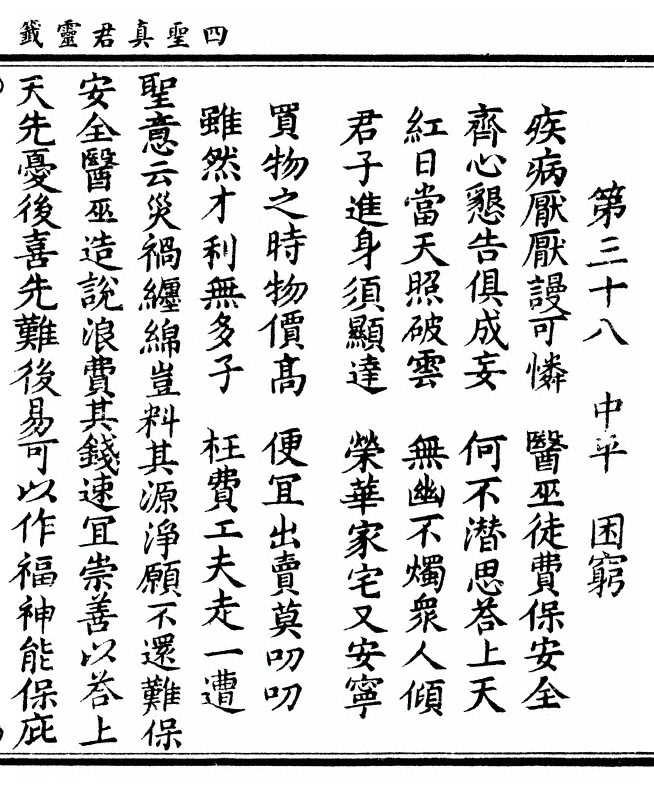 四聖真君靈籤
第三十八 中平 困窮
疾病厭厭謾可憐 醫巫徒費保安全
齊心懇告俱成妄 何不潛思荅上天
紅日當天照破雲 無幽不燭衆人傾
君子進身須顯達 榮華家宅又安寧
買物之時物價高 便冝出賣莫叨叨
雖然才利無多子 枉費工夫走一遭
聖意云災禍纏綿豈料其源淨願不還難保
安全醫巫造說浪費其錢速冝崇善以荅上
天先憂後喜先難後易可以作福神能保庇